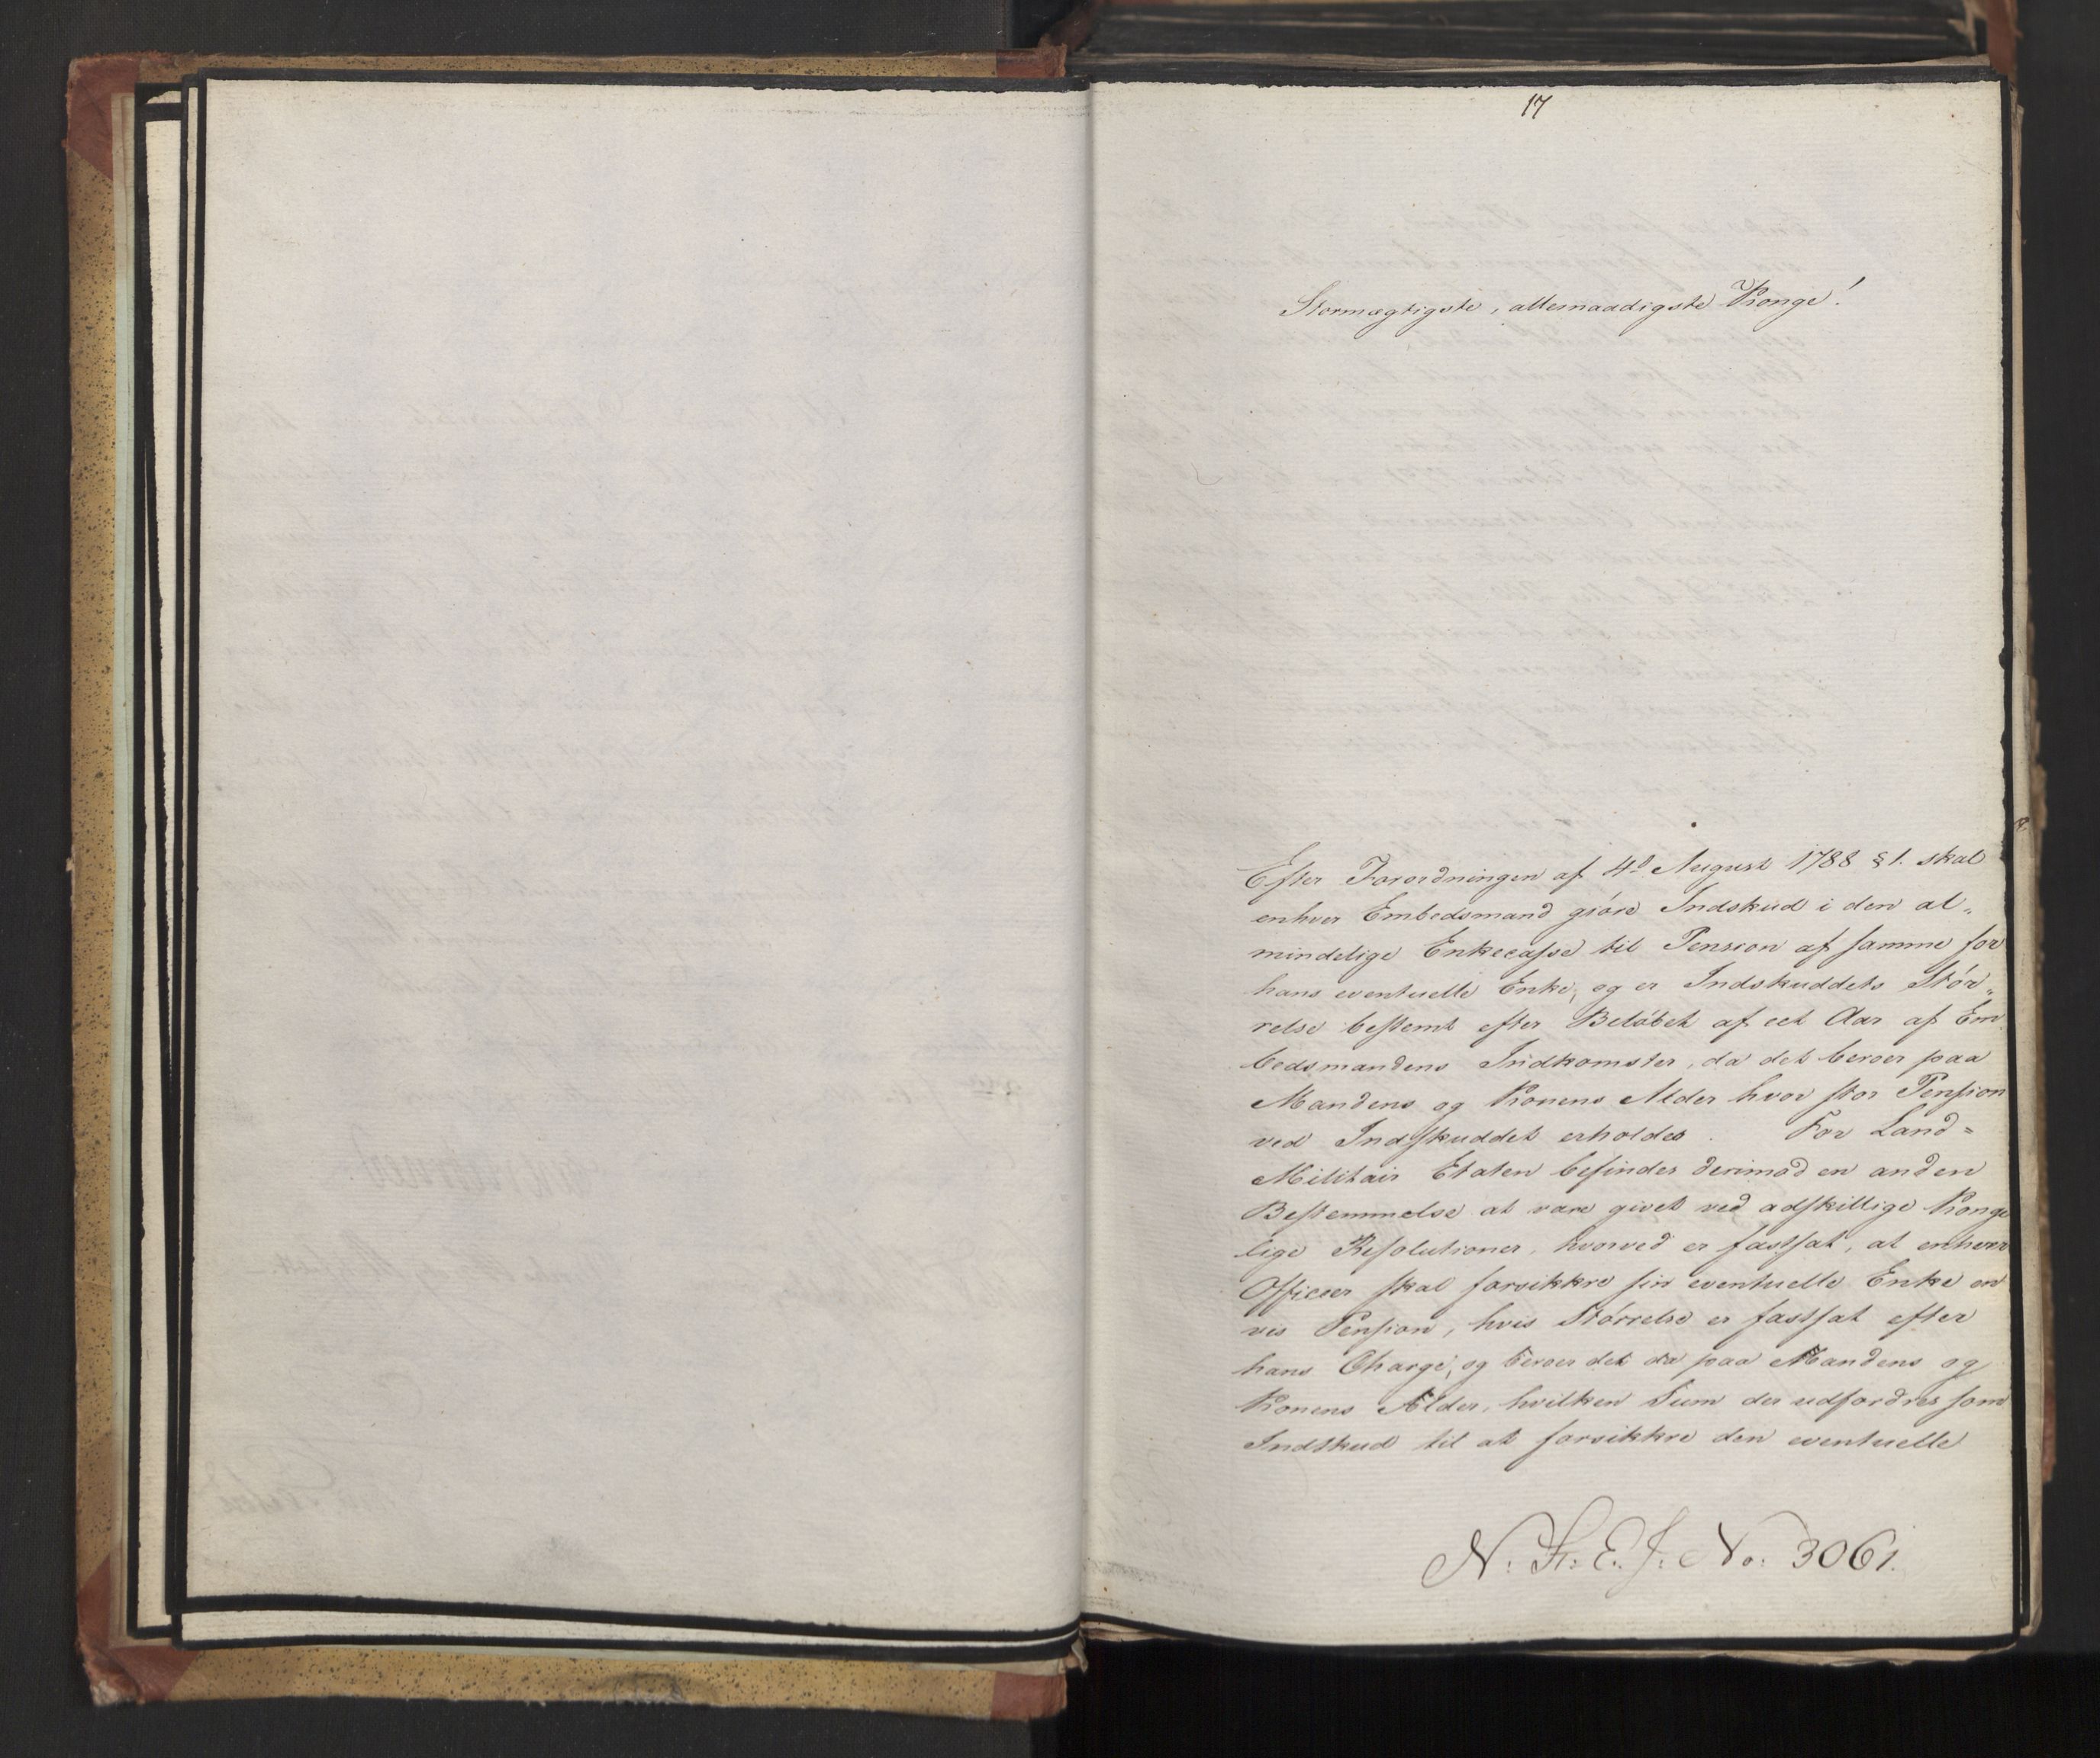 17
Stormægtigste, allernaadigste Konge!
Efter Forordningen af 4d August 1788 § 1. skal
enhver Embedsmand gjöre Indskud i den al„
mindelige Enkecasse til Pension af samme for
hans eventuelle Enke, og er Indskuddets Stör„
relse bestemt efter Belöbet af eet Aar af Em
bedsmandens Indkomster, da det beroer paa
Mandens og Konens Alder hvor stor Pension
ved Indskuddet erholdes. For Land=
Militair Etaten befindes derimod en anden
Bestemmelse at være givet ved adskillige Konge
lige Resolutioner, hvorved er fastsat, at enhver
Officeer skal forsikkre sin eventuelle Enke en
vis Pension, hvis Störrelse er fastsat efter
hans Charge, og beroer det da paa Mandens og
Konens Alder, hvilken Sum der udfordres som
Indskud til at forsikkre den eventuelle
N. St: E. J: No: 3061.